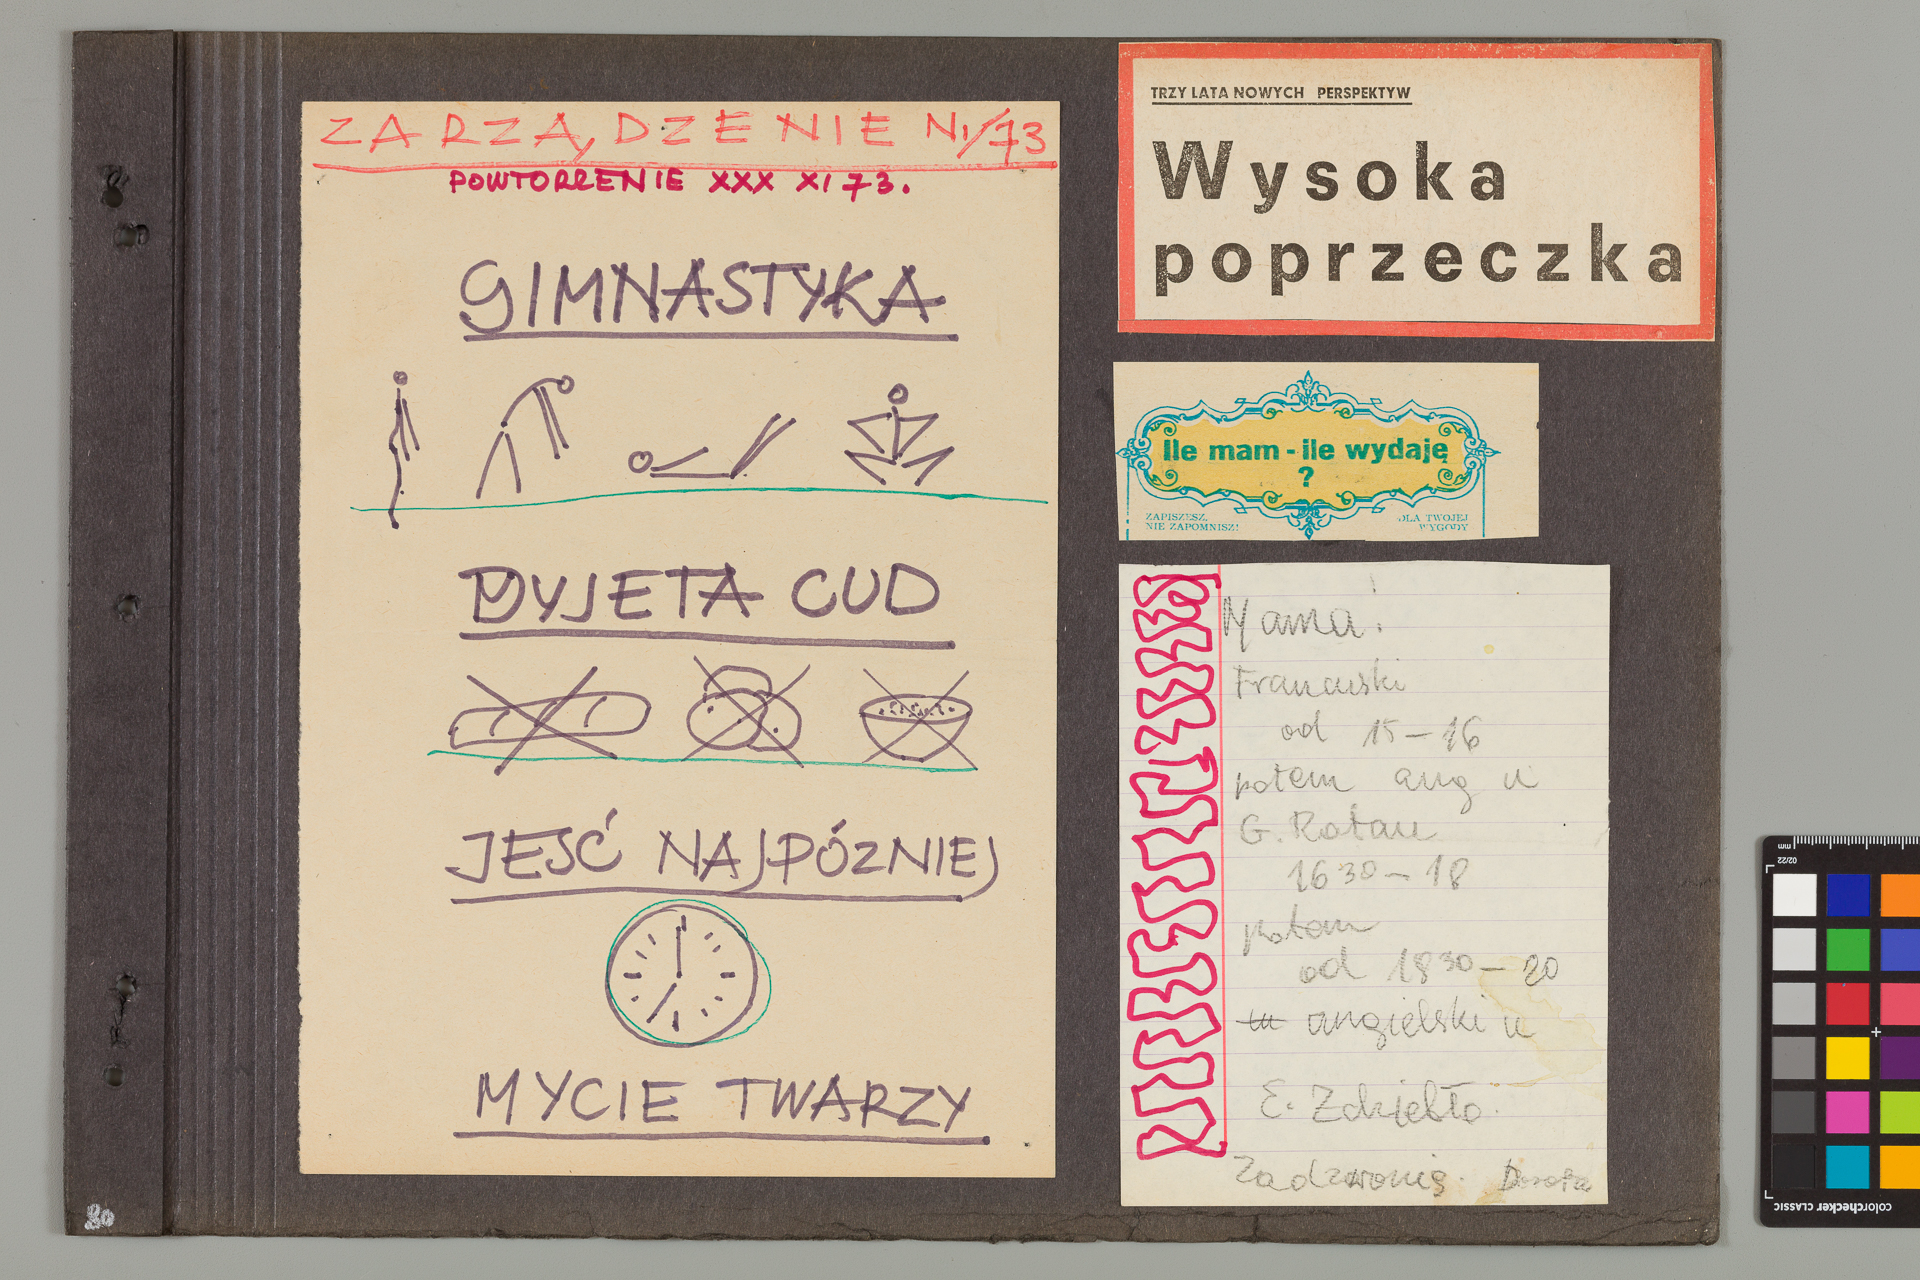 ZARZĄDZENIE N1/73
POWTORZENIE XXX XI 73.
GIMNASTYKA
DYJETA CUD
JEŚĆ NAJPÓZNIEJ
MYCIE TWARZY
TRZY LATA NOWYCH PERSPEKTYW
Wysoka
poprzeczka
Ile mam - ile wydaję
?
ZAPISZESZ,
NIE ZAPOMNISZ!
DLA TWOJEJ
WYGODY
Mama!
Francuski
od 15-16
potem ang u
G. Rotau
16 30 - 18
potem
od 18 30 - 20
angielski u
E. Zdziebło.
Zadzwonię. Dorota
30
mm
02/22
colorchecker CLASSIC